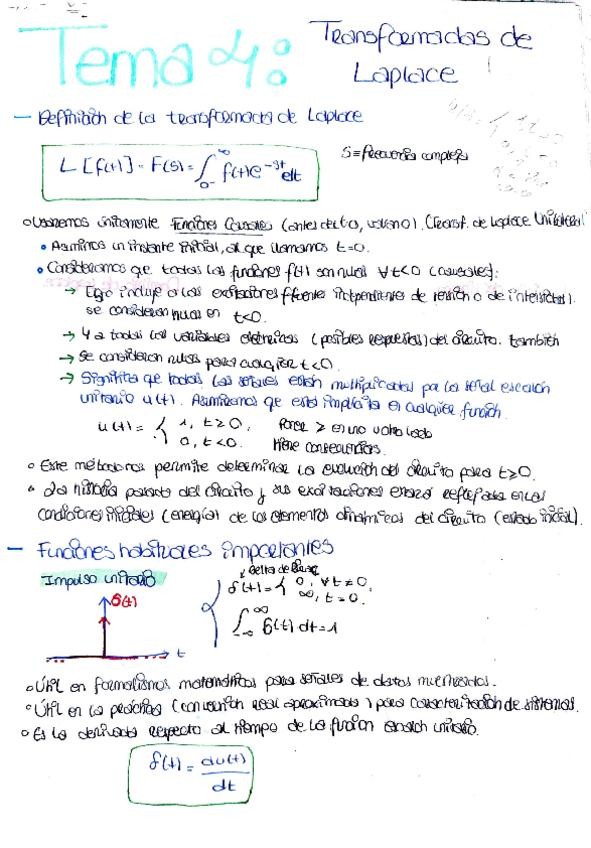 Tema 4: Transformadas de
Laplace
— Definición de la transformada de Laplace
L[f(t)] = F(s) = ∫0-^∞ f(t)e^-st dt
S = frecuencia compleja
Usaremos únicamente Funciones Causales (antes del t=0, valen 0). (Transf. de Laplace Unilateral)
• Asumimos un instante inicial, al que llamamos t=0.
• Consideramos que todas las funciones f(t) son nulas ∀t<0 (causales):
→ Esto incluye a las excitaciones (fuentes independientes de tensión o de intensidad).
se consideran nulas en t<0.
→ Y a todas las variables eléctricas (posibles respuestas) del circuito. también
→ se consideran nulas para cualquier t<0.
→ Significa que todas las señales están multiplicadas por la señal escalón
unitario u(t). Asumiremos que está implícita en cualquier función.
u(t) = { 1, t≥0.
0, t<0.
Poner ≥ en uno u otro lado
tiene consecuencias.
Este método nos permite determinar la evolución del circuito para t≥0.
La historia pasada del circuito y sus excitaciones estará reflejada en las
condiciones iniciales (energía) de los elementos dinámicos del circuito (estado inicial).
— Funciones habituales importantes
Impulso unitario
δ(t)
t
Delta de Dirac
δ(t) = { 0, ∀t≠0.
∞, t=0.
∫-∞^∞ δ(t) dt = 1
Útil en formalismos matemáticos para señales de datos muestreados.
Útil en la práctica (con versión real aproximada) para caracterización de sistemas.
Es la derivada respecto al tiempo de la función escalón unitario.
δ(t) = du(t)/dt